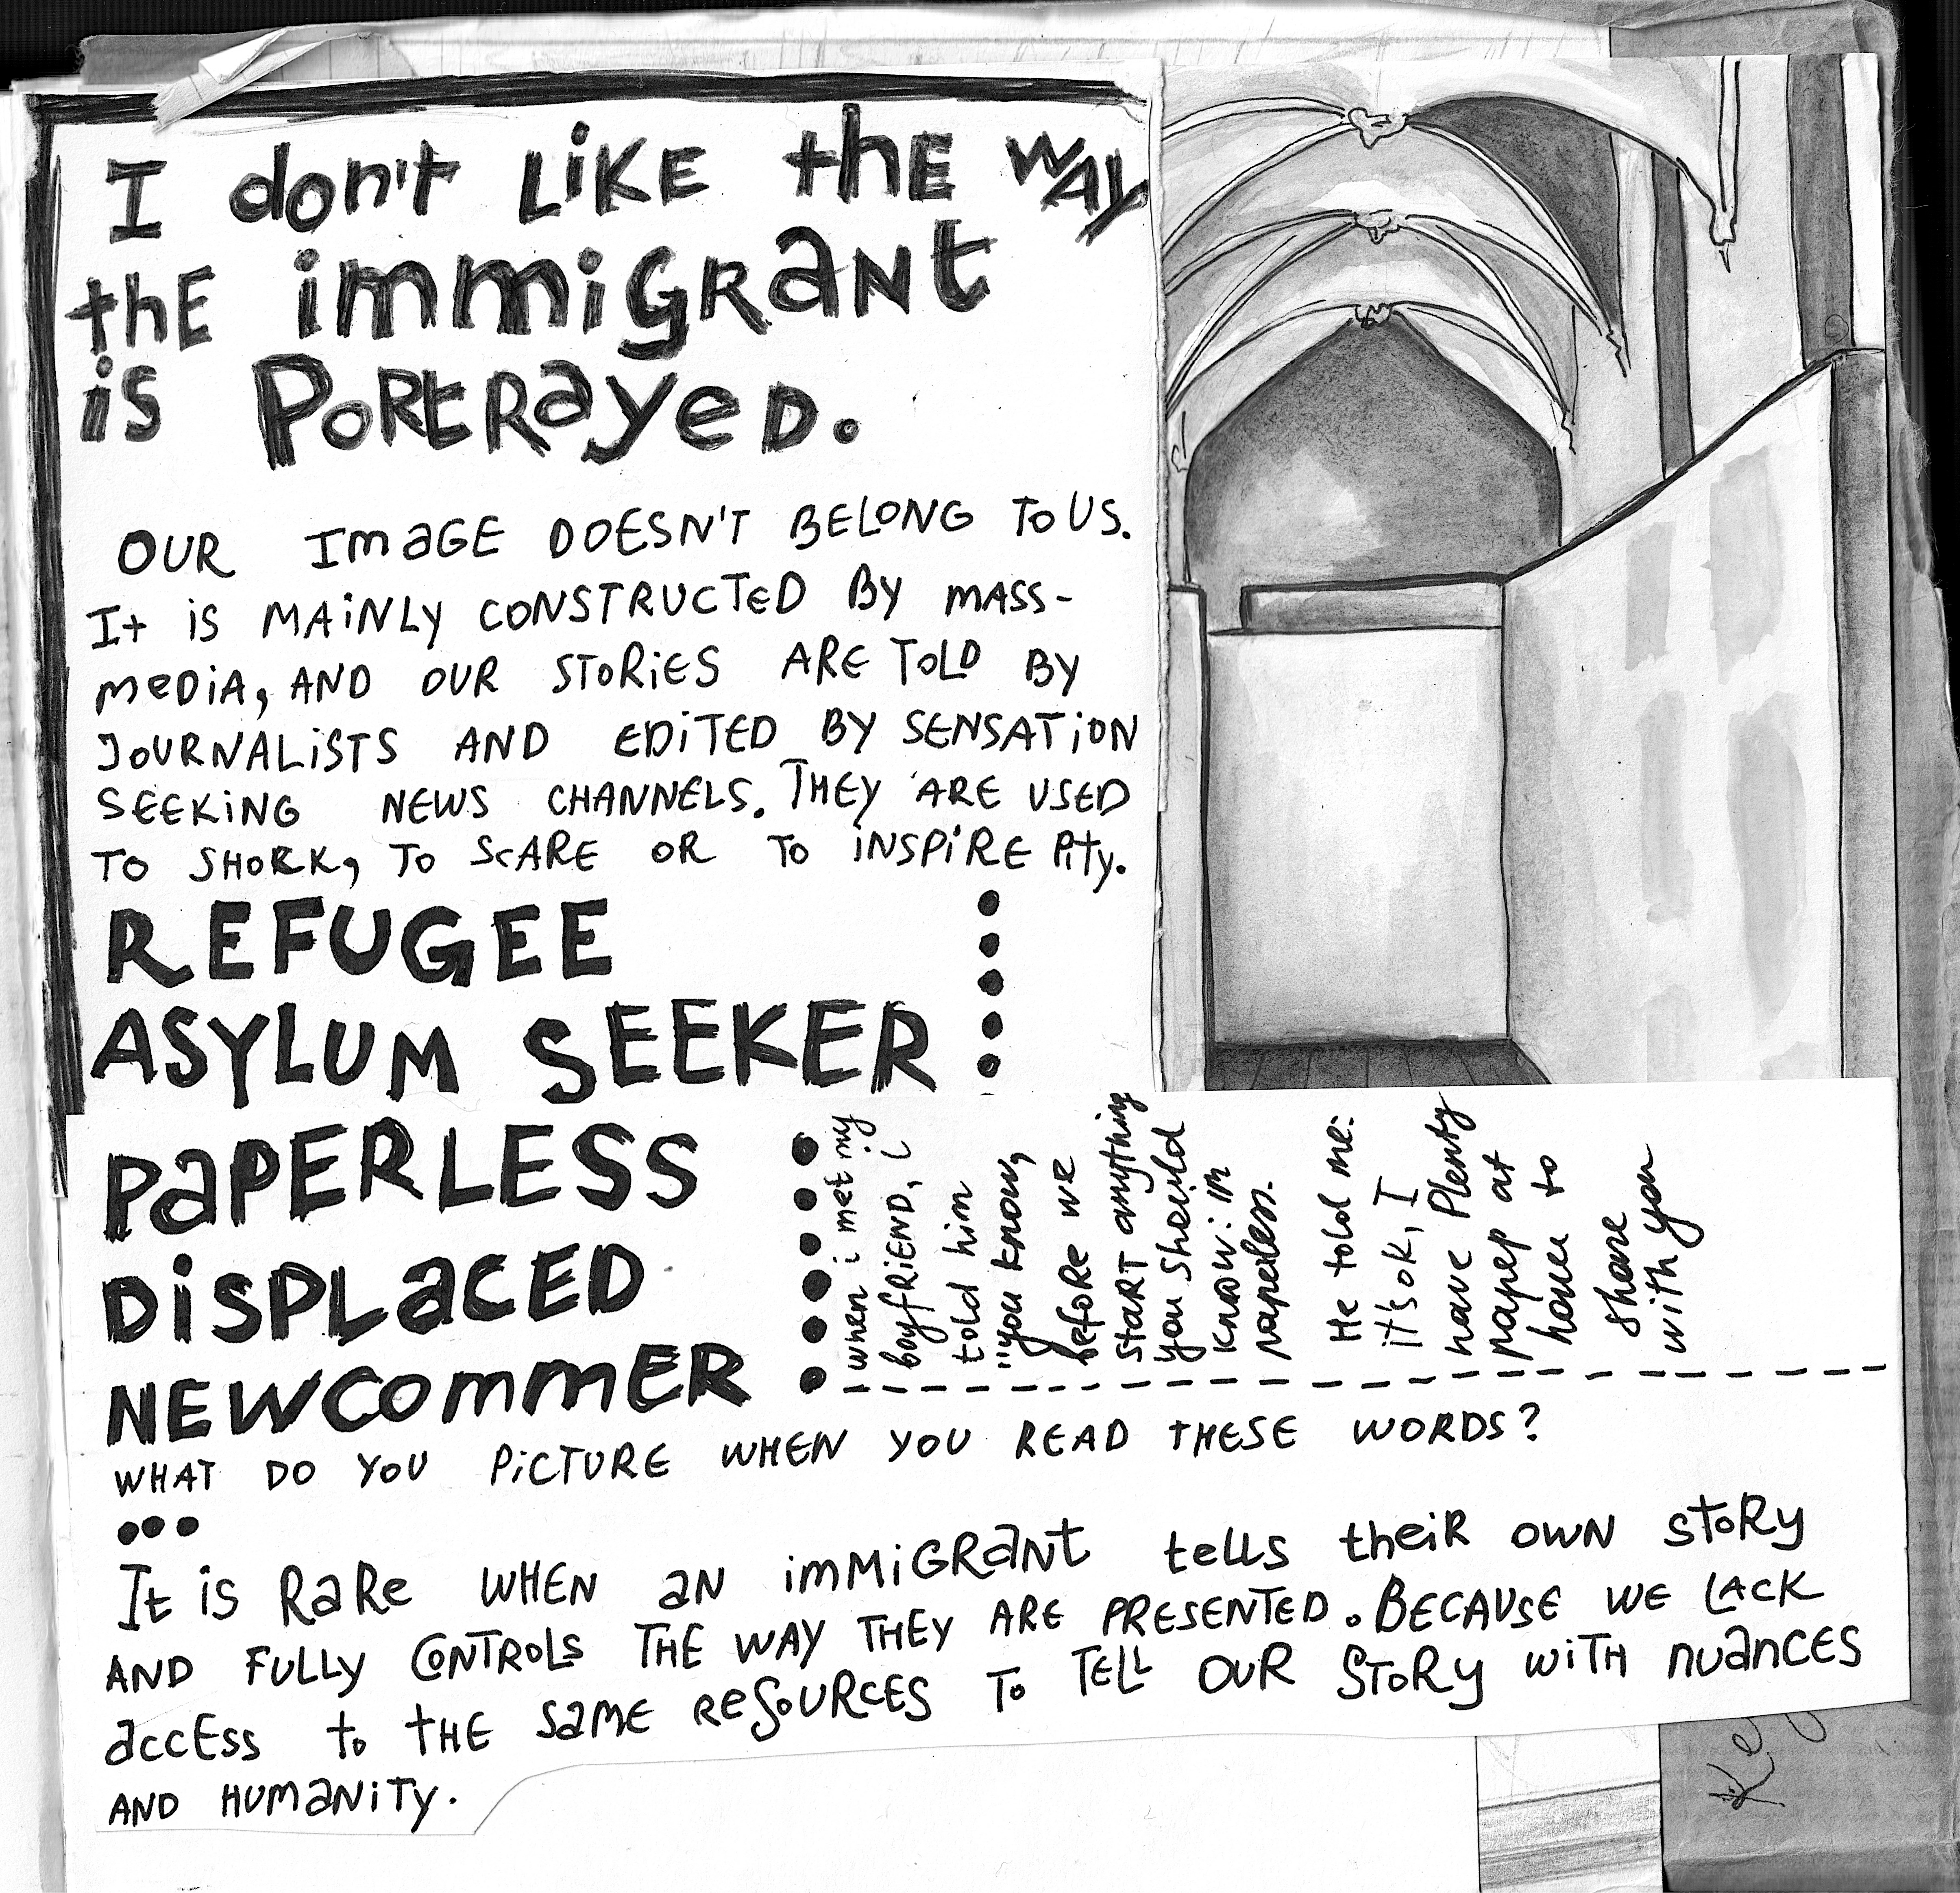 I don't LiKE thE WAY
thE immiGRaNt
is PORtRayeD.
OUR ImaGE DOESN'T BELONG TO US.
It iS MAiNLY CONSTRUCTeD BY MASS-
MeDiA, AND OUR STORiES ARE TOLD BY
JOURNALiSTS AND EDiTED BY SENSATiON
SEEKiNG NEWS CHANNELS. THEY ARE USED
TO SHOCK, TO ScARE OR TO iNSPiRE Pity.
REFUGEE
ASYLUM SEEKER
PaPERLESS
DiSPLaCED
NEWCommER
when i met my
boyfRiEND, i
told him
"you know,
before we
StaRT anything
you should
know: im
paperless.
He told me:
it's ok, I
have Plenty
paper at
home to
share
with you
WHAT DO YOU PiCTURE WHEN YOU READ THESE WORDS?
•••
It is RaRe WHEN aN imMiGRaNt tells theiR OWN StoRy
AND FULLY CONTROLS THE WAY THEY ARE PRESENTED. BECAUSE WE LACK
accEss to tHE SamE ReSOURCES To TELL OUR SToRy WiTH NUaNCES
AND HUMaNiTy.